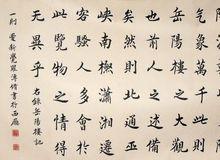 氣象萬千此則
岳陽樓之大觀
也前人之述備
矣然則北通巫
峽南極瀟湘遷
客騷人多會於
此覽物之情得
無異乎
右錄岳陽樓記
一則 愛新覺羅溥